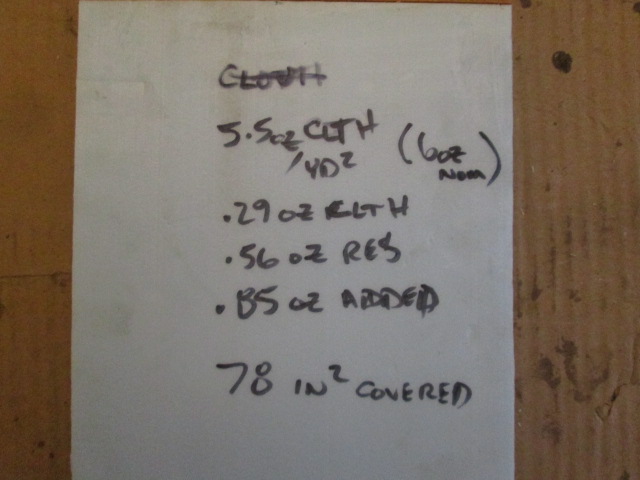 CLOUH
5.5oz CLTH
/YD² (6oz NOM)
.29 oz CLTH
.56 oz RES
.85 oz ADDED
78 IN² COVERED